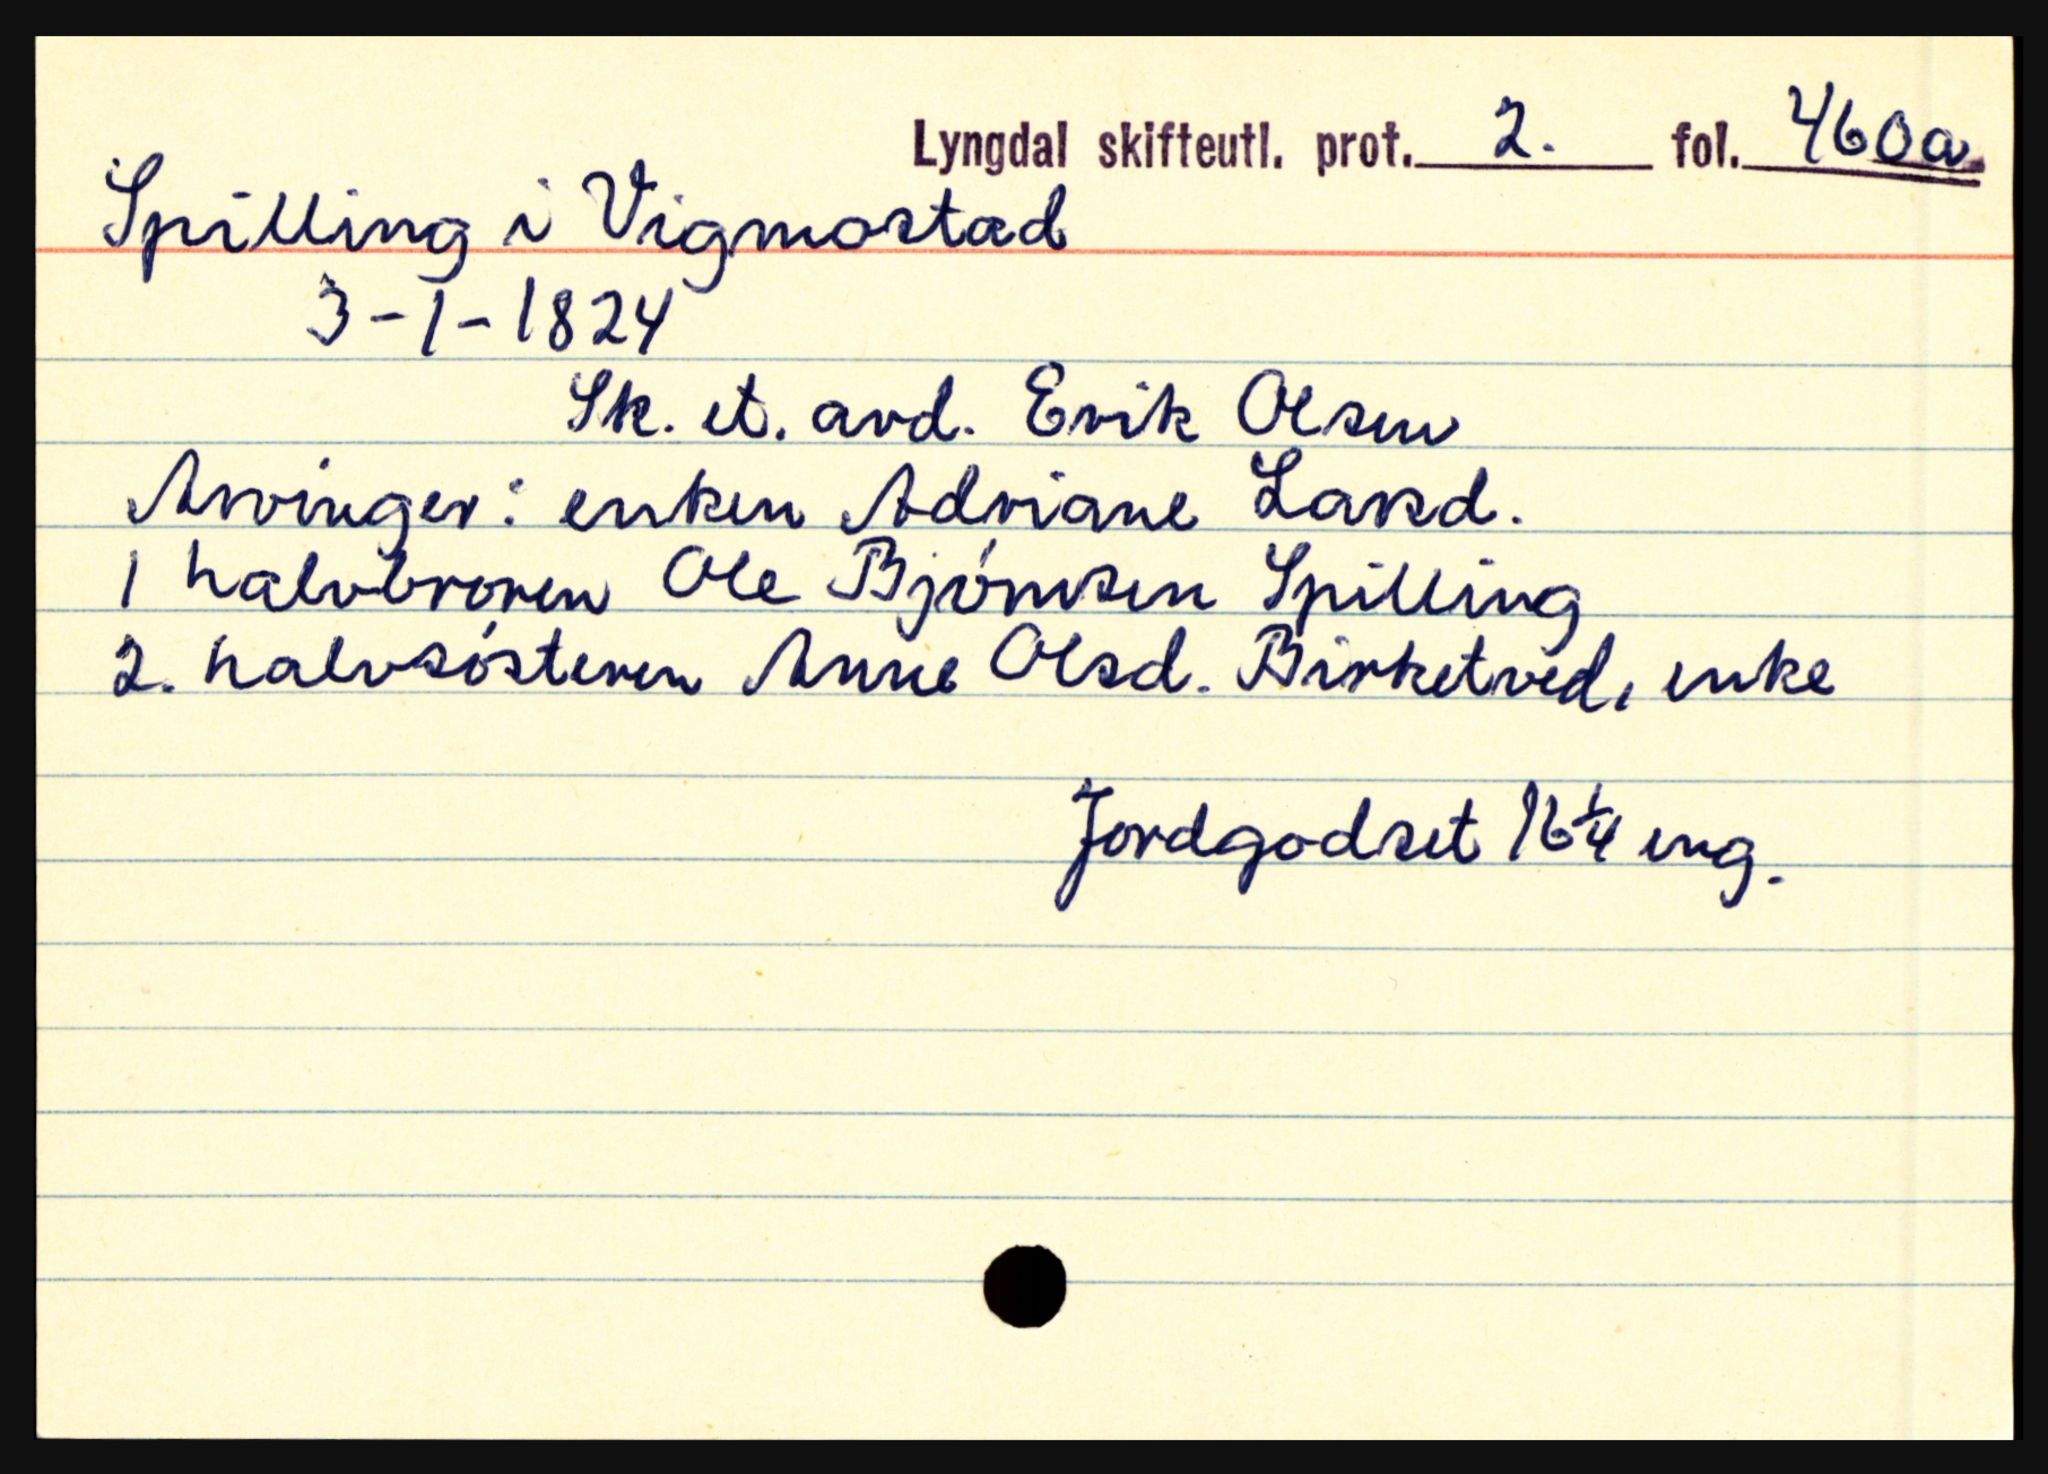 Lyngdal skifteutl. prot. 2. fol. 460a
Spilling i Vigmostad
3-1-1824
Sk. et. avd. Erik Olsen
Arvinger: enken Adriane Larsd.
1 halvbroren Ole Bjørnsen Spilling
2. halvsøsteren Anne Olsd. Birketved, enke
Jordgodset 16 1/4 eng.